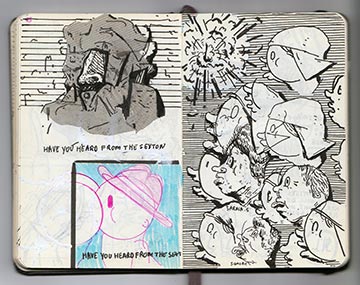 HAVE YOU HEARD FROM THE SEXTON
HAVE YOU HEARD FROM THE SEXT